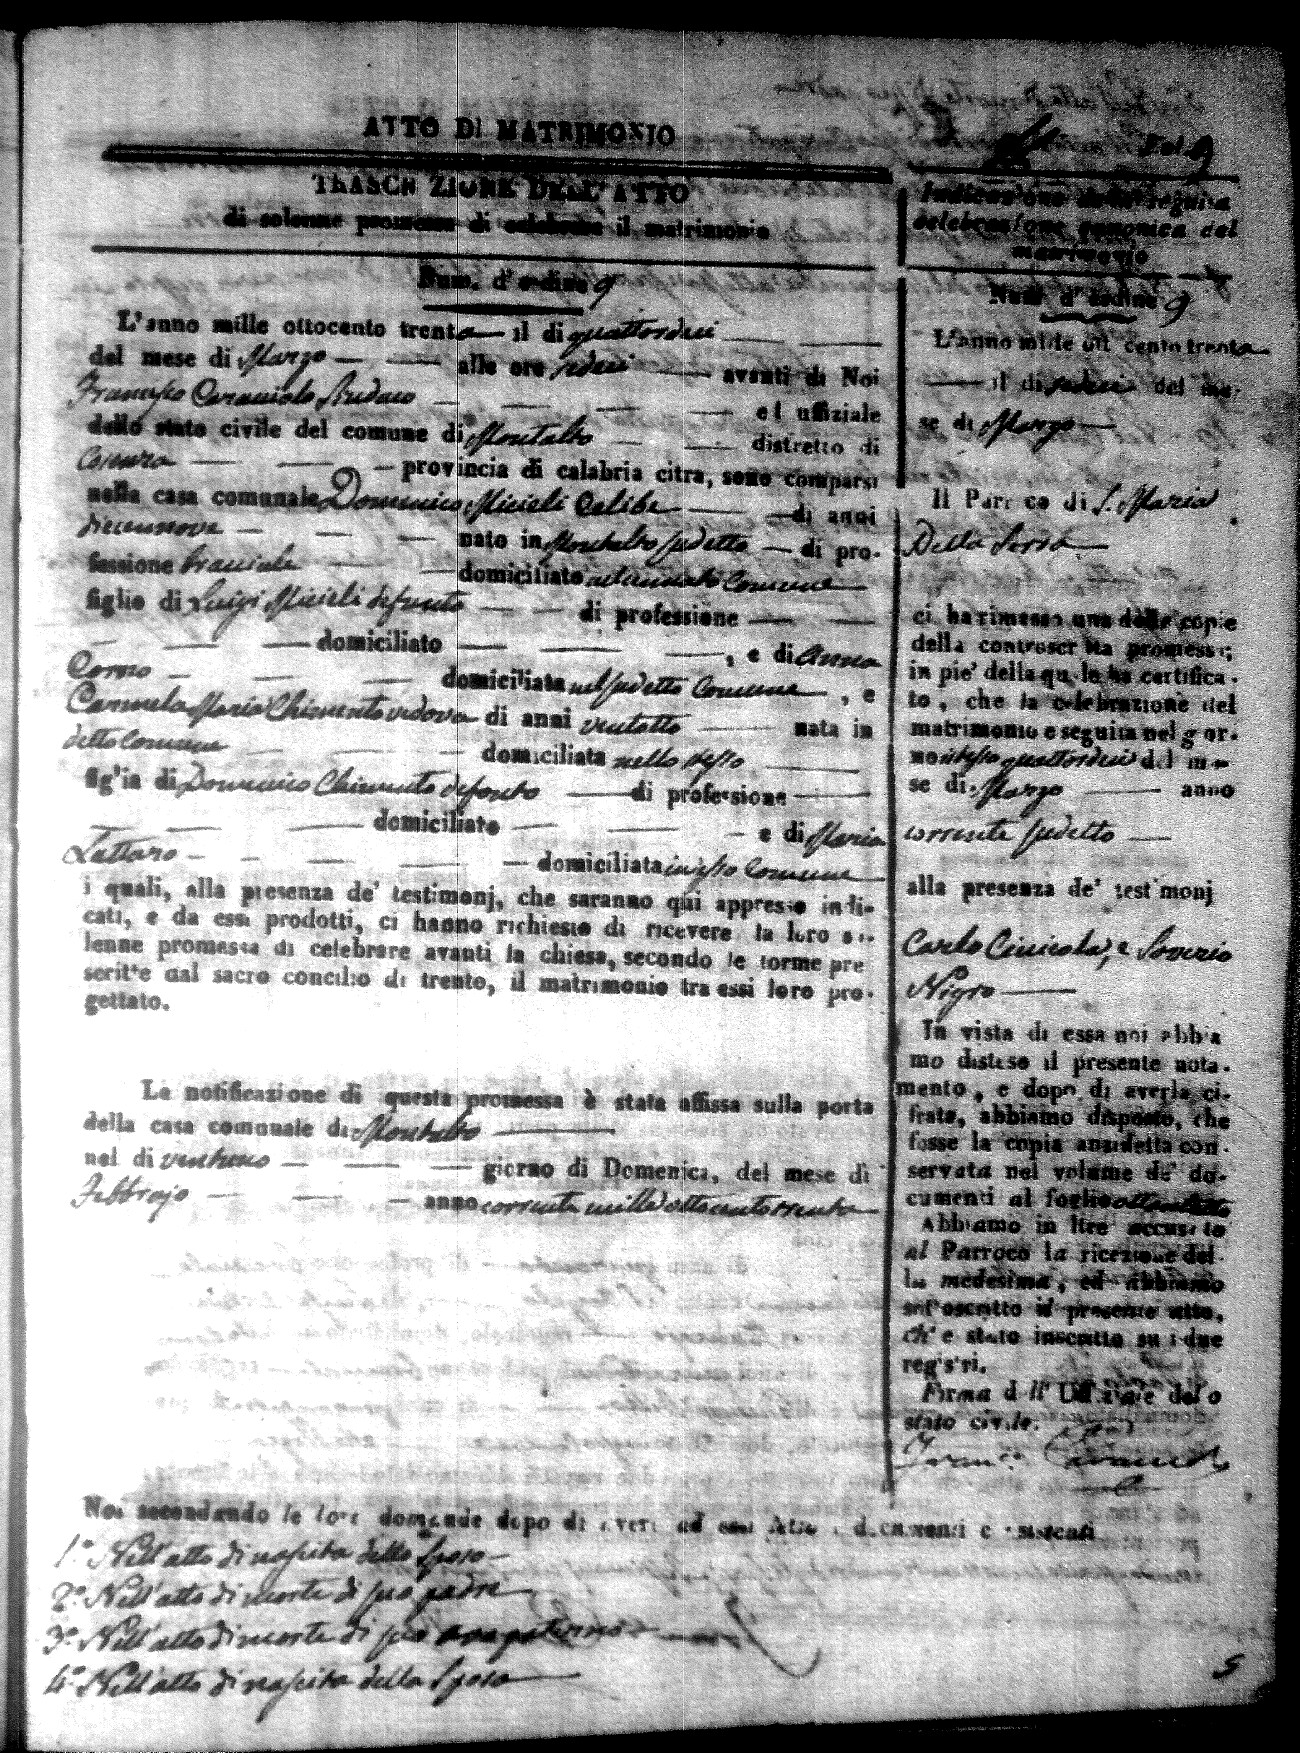 ATTO DI MATRIMONIO
Fol. 9
TRASCRIZIONE DELL' ATTO
di solenne promessa di celebrare il matrimonio
Num. d' ordine 9
L'anno mille ottocento trenta il di quattordici
del mese di Marzo alle ore sedici avanti di Noi
Francesco Caraviolo Sindaco ed uffiziale
dello stato civile del comune di Montalto distretto di
Cosenza provincia di calabria citra, sono comparsi
nella casa comunale Domenico Micieli Celibe di anni
diecinnove nato in Montalto sudetto di pro-
fessione bracciale domiciliato nell'annotato Comune
figlio di Luigi Micieli defonto di professione
domiciliato , e di Anna
Corno domiciliata nel sudetto Comune , e
Carmela Maria Chimento vedova di anni ventotto nata in
detto Comune domiciliata nello stesso
figlia di Domenico Chimento defonto di professione
domiciliato e di Maria
Lattaro domiciliata in esso Comune
i quali, alla presenza de' testimonj, che saranno qui appresso indi-
cati, e da essi prodotti, ci hanno richiesto di ricevere la loro so-
lenne promessa di celebrare avanti la chiesa, secondo le forme pre
scritte dal sacro concilio di trento, il matrimonio tra essi loro pro-
gettato.
La notificazione di questa promessa è stata affissa sulla porta
della casa comunale di Montalto
nel di ventuno giorno di Domenica, del mese di
Febbrajo anno corrente mille ottocento trenta
Noi secondando le loro domande dopo di aver
1.° Nell'atto di nascita dello Sposo
2.° Nell'atto di morte di suo padre
3.° Nell'atto di morte di suo avo paterno
4.° Nell'atto di nascita della Sposa
Indicazione della seguita
celebrazione canonica del
matrimonio
Num. d' ordine 9
L'anno mille ott cento trenta
il di sedici del me-
se di Marzo
Il Parroco di S. Maria
Della Serra
ci ha rimesso una delle copie
della controscritta promessa;
in piè della quale ha certifica-
to, che la celebrazione del
matrimonio e seguita nel gior-
no stesso quattordici del me-
se di Marzo anno
corrente sudetto
alla presenza de' testimonj
Carlo Cinicola, e Saverio
Nigro
In vista di essa noi abbia
mo disteso il presente nota-
mento, e dopo di averla ci-
frata, abbiamo disposto, che
fosse la copia anzidetta con-
servata nel volume de' do-
cumenti al foglio
Abbiamo in ltre accusato
al Parroco la ricezione del-
la medesima, ed abbiamo
sottoscritto il presente atto,
ch' e stato inscritto su i due
registri.
Firma dell' Uffiziale dello
stato civile.
5